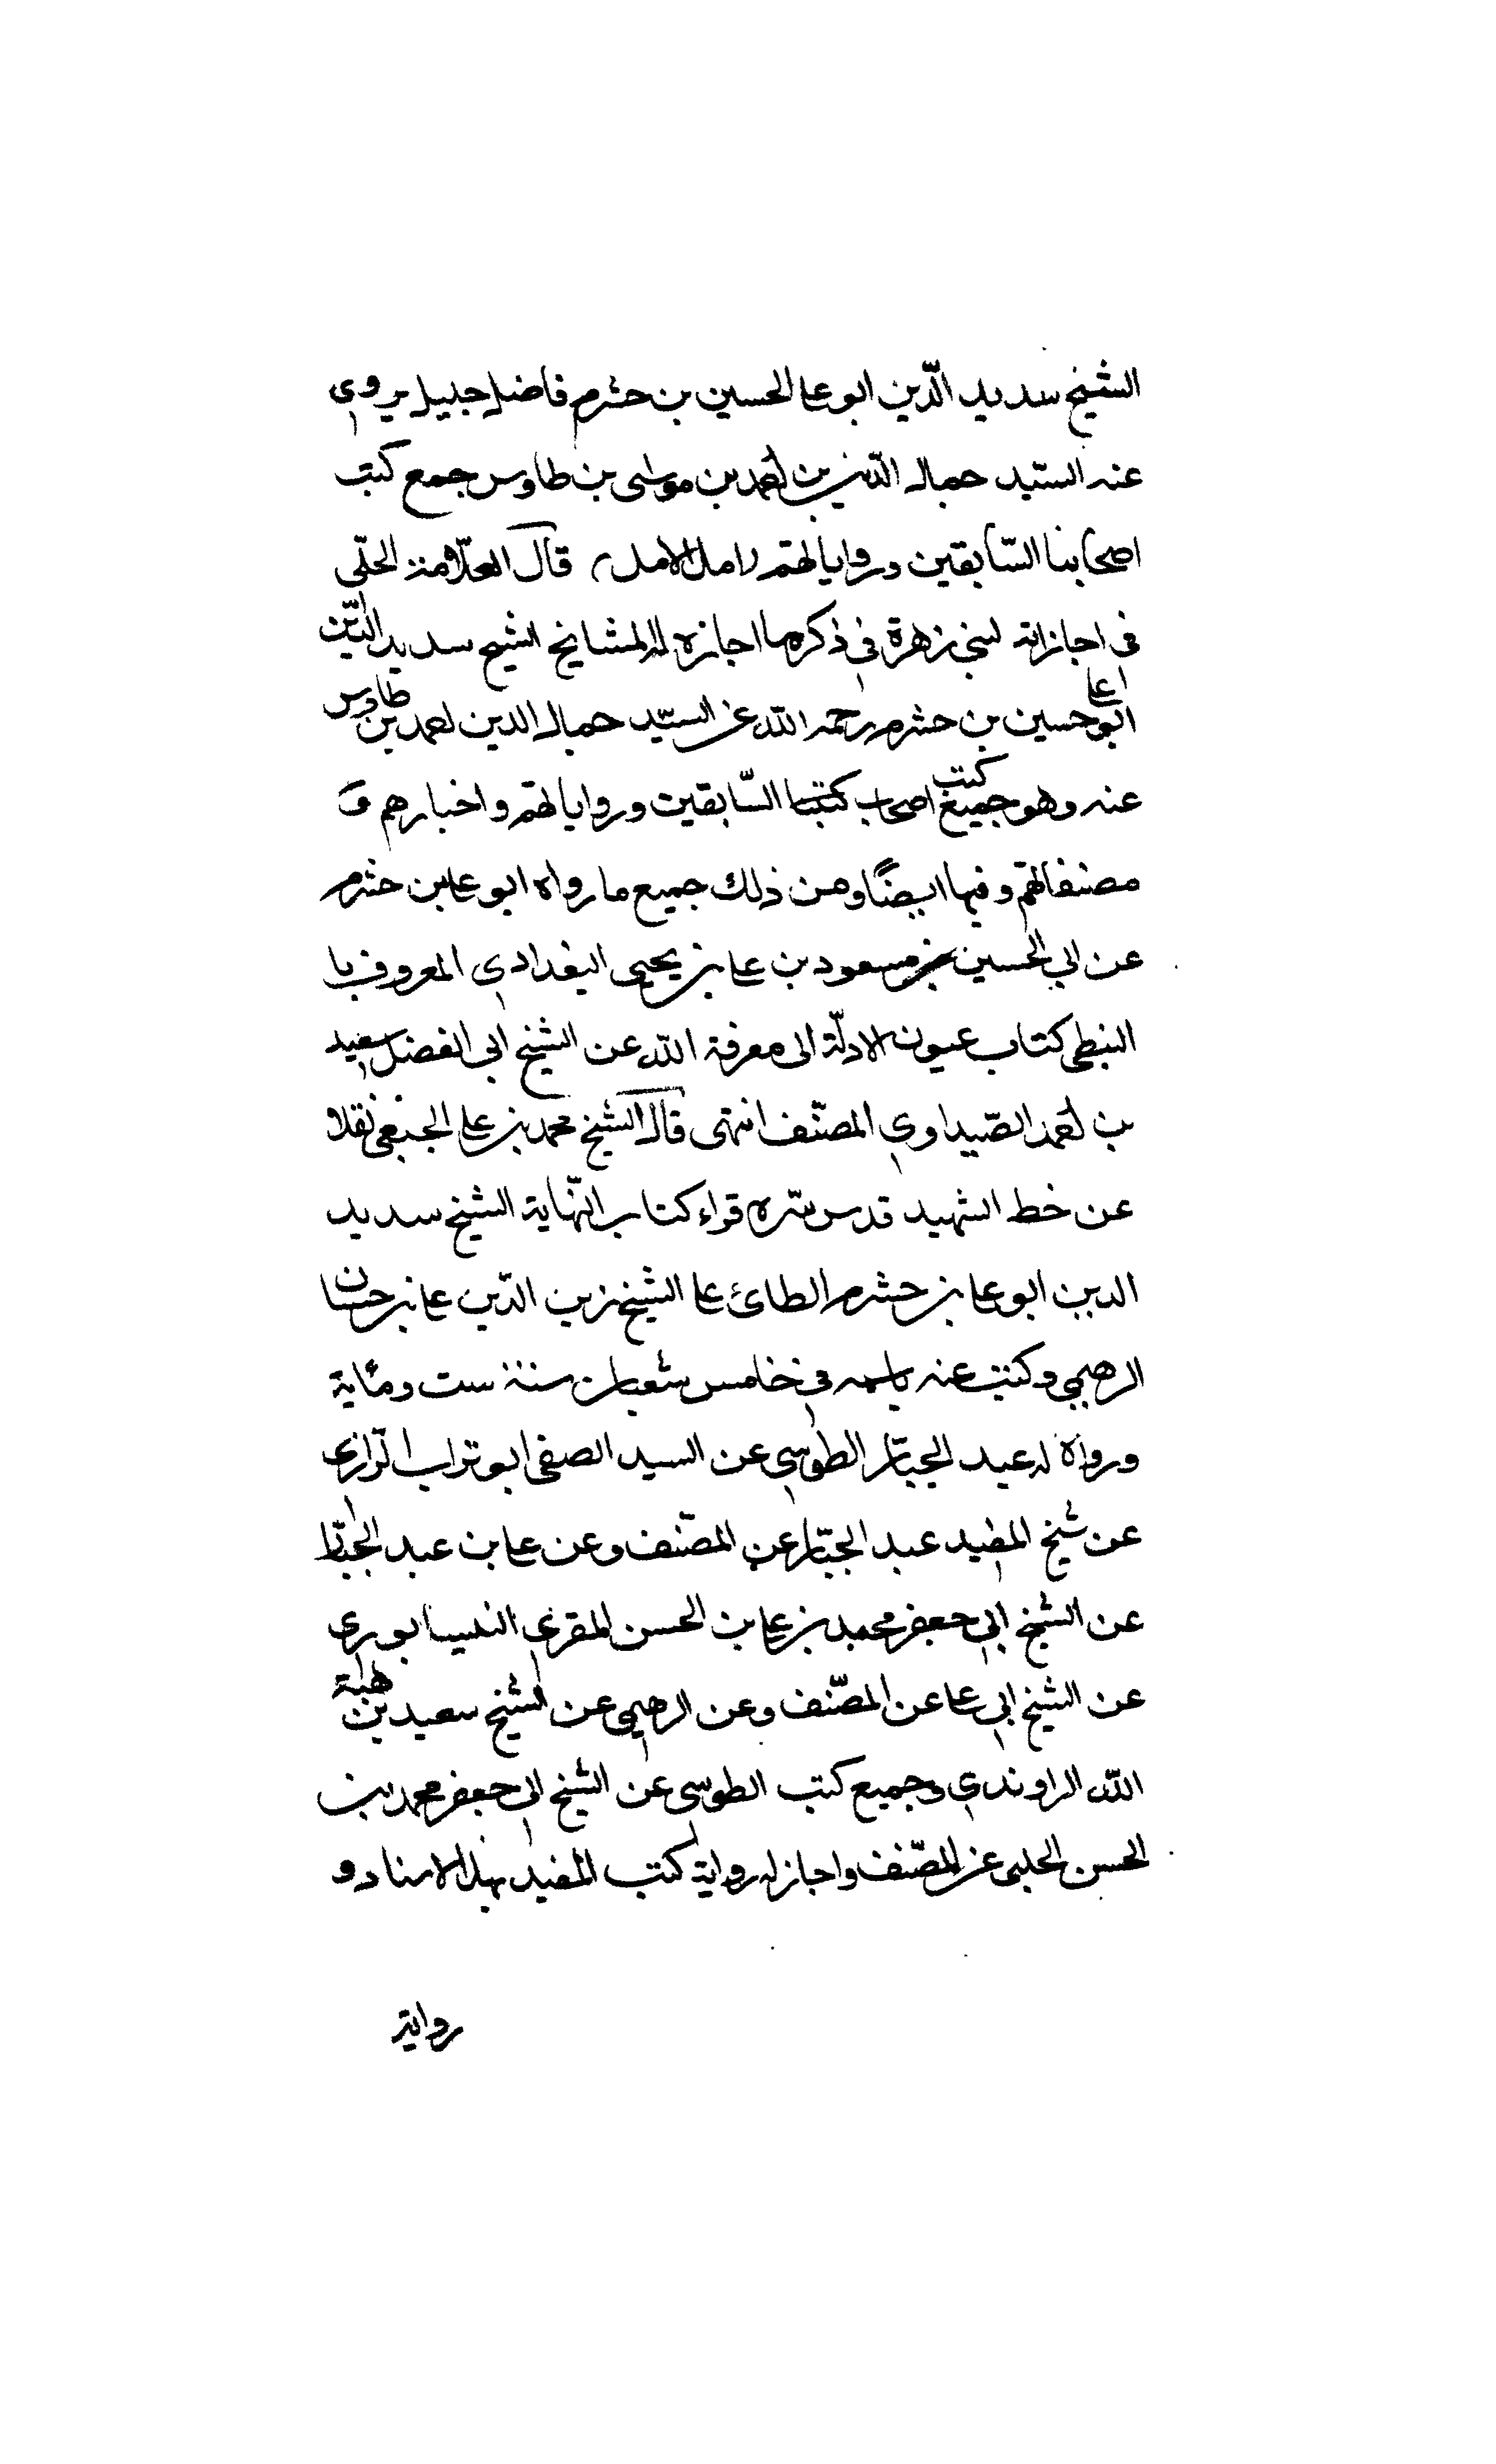 الشيخ سديد الدّين ابو علي الحسين بن خشرم فاضل جليل يروى
عنه السّيد جمال الدّين بن احمد بن موسى بن طاوس جمع كتب
اصحابنا السّابقين ورواياتهم امل الامل قال العلّامة الحلّى
فى اجازاته لبنى زهرة فى ذكر ما اجازه له المشايخ الشيخ سديد الدّين
ابو على حسين بن خشرم رحمه الله عن السيّد جمال الدين احمد بن طاوس
عنه وهو جميع كتب اصحاب كتبنا السّابقين ورواياتهم واخبارهم و
مصنفاتهم وفيها ايضًا ومن ذلك جميع ما رواه ابو على بن خشرم
عن ابى الحسين بن مسعود بن على بن يحيى البغدادي المعروف با
النبطى كتاب عيون الادلّة الى معرفة الله عن الشيخ ابى الفضل سعيد
بن احمد الصّيداوي المصنّف انتهى قال الشيخ محمد بن على الجبعى نقلا
عن خط الشهيد قدس سّره قراء كتاب النّهاية الشيخ سديد
الدين ابو على بن خشرم الطائ على الشيخ زين الدّين على بن حسان
الرهيمي وكتب عنه باسمه في خامس شعبان سنة ست ومئاية
ورواه له عبد الجبّار الطوسي عن السيد الصفى ابو تراب الرّازى
عن شيخ المفيد عبد الجبّار عن المصنّف وعن على بن عبد الجبّار
عن الشيخ ابي جعفر محمد بن على بن الحسن المقري النيسابورى
عن الشيخ ابي على عن المصنّف وعن الرهيمي عن الشيخ سعيد بن هبة
الله الراوندي وجميع كتب الطوسى عن الشيخ ابى جعفر محمد بن
الحسن الحلبى عن المصنّف واجاز له رواية كتب المفيد بهذا الاسناد و
رواية